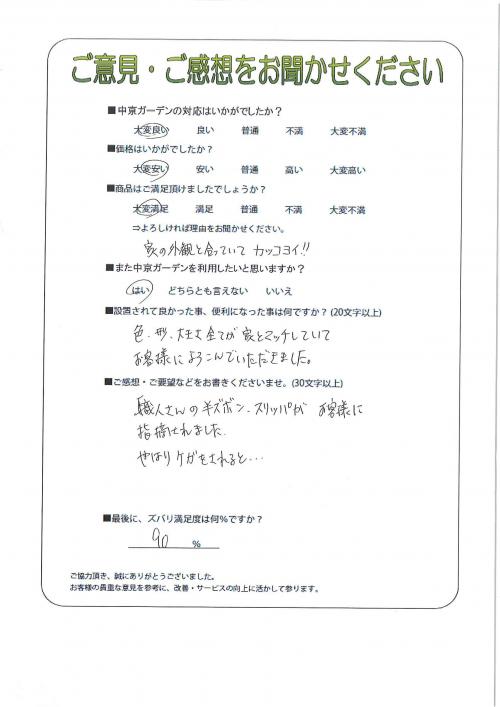 ご意見・ご感想をお聞かせください
■中京ガーデンの対応はいかがでしたか？
大変良い 良い 普通 不満 大変不満
■価格はいかがでしたか？
大変安い 安い 普通 高い 大変高い
■商品はご満足頂けましたでしょうか？
大変満足 満足 普通 不満 大変不満
⇒よろしければ理由をお聞かせください。
家の外観と合っていて カッコヨイ!!
■また中京ガーデンを利用したいと思いますか？
はい どちらとも言えない いいえ
■設置されて良かった事、便利になった事は何ですか？(20文字以上)
色、形、大きさ全てが家とマッチしていて
お客様によろこんでいただきました。
■ご感想・ご要望などをお書きくださいませ。(30文字以上)
職人さんの半ズボン、スリッパが お客様に
指摘されました。
やはりケガをされると…
■最後に、ズバリ満足度は何％ですか？
90 ％
ご協力頂き、誠にありがとうございました。
お客様の貴重な意見を参考に、改善・サービスの向上に活かして参ります。